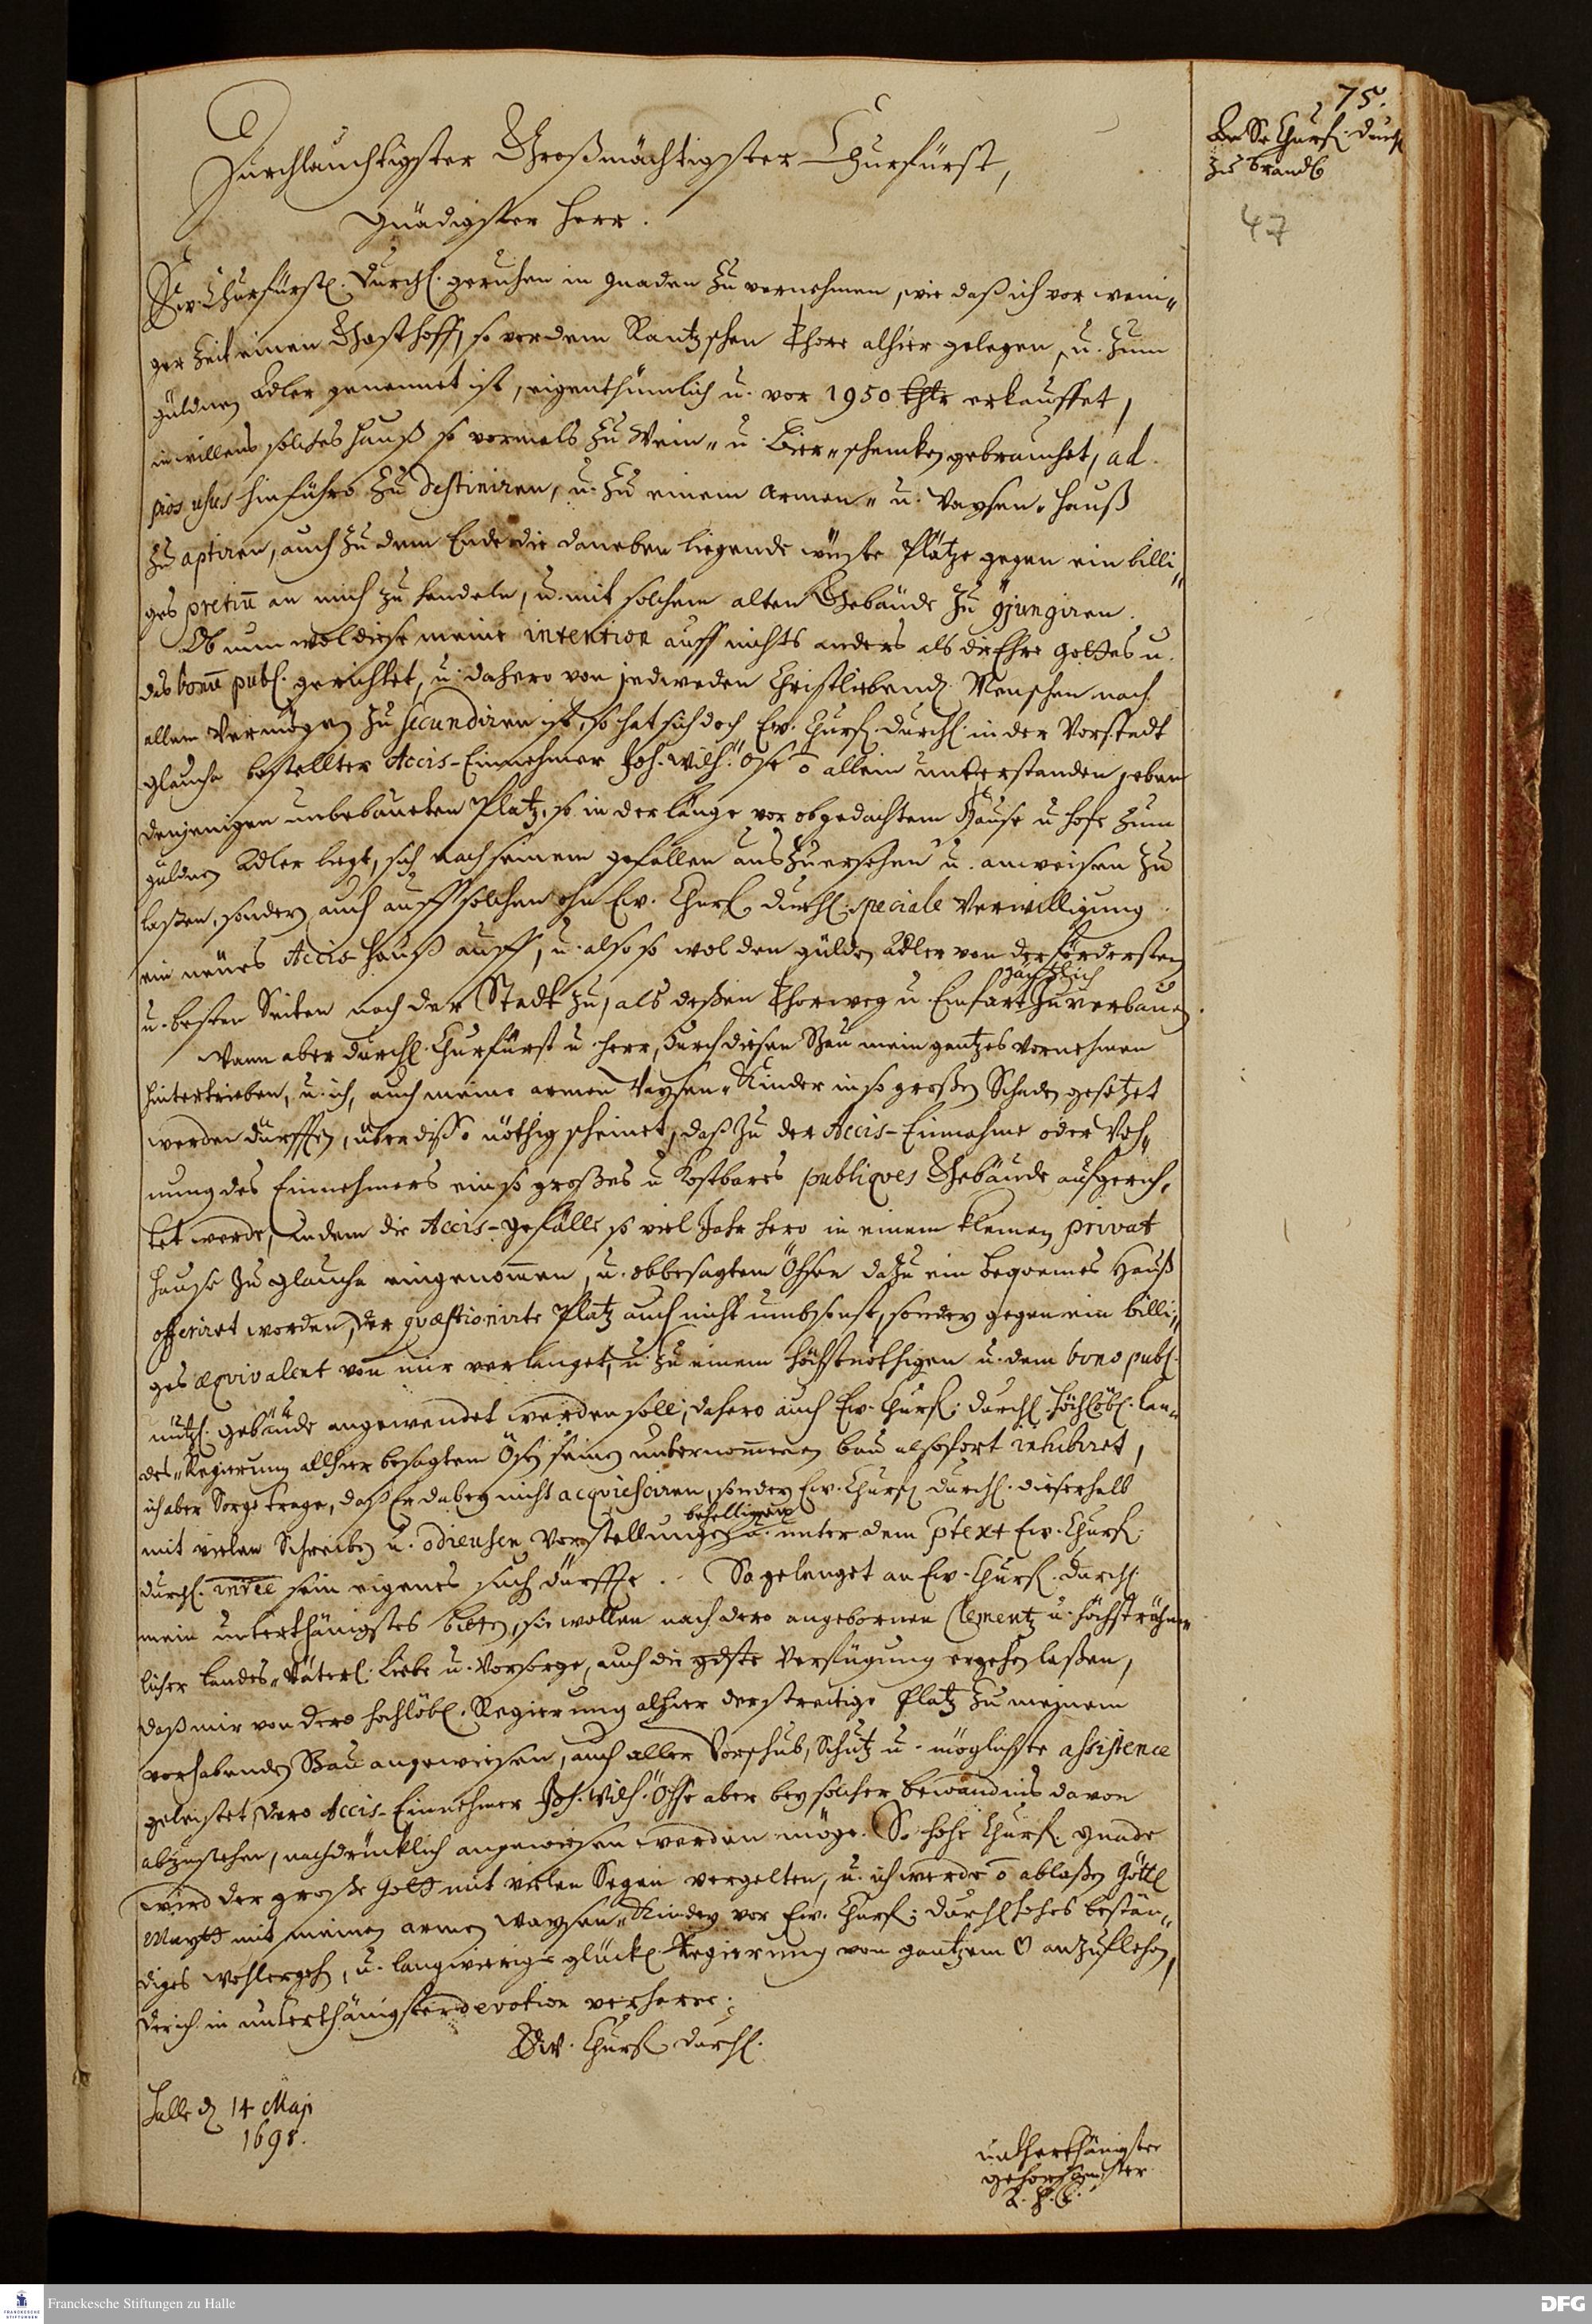 75.
An Se Churf. Durchl
zu Brandb
47
Durchlauchtigster Großmächtigster Churfürst,
Gnädigster Herr.
Ew. Churfürstl. Durchl. geruhen in gnaden zu vernehmen, wie daß ich vor weni„
ger Zeit einen Gasthoff, so vor dem Rantzschen Thore alhier gelegen, u. zum
güldnen Adler genennet ist, eigenthümlich u. vor 1950 thlr erkauffet,
in willens solches Hauß so vormals zu Wein„ u. Bier„schencken gebrauchet, ad
pios usus hinführo zu destiniren, u. zu einem Armen„ u. Waysen„Hauß
zu aptiren, auch zu dem Ende die daneben liegende wüste Plätze gegen ein billi„
ges pretiu an mich zu handeln, u. mit solchem alten Gebäude zu conjungiren.
Ob nun wol diese meine intention auff nichts anders als die Ehre Gottes u.
das bonu publ. gerichtet, u. dahero von jedweden Christliebend Menschen nach
allem Vermögen zu secundiren ist, so hat sich doch Ew. Churf. Durchl. in der Vorstadt
Glaucha bestellter Accis-Einnehmer Joh. Wilh. Öse o allein unterstanden, eben
denjenigen unbebaueten Platz, so in der länge vor obgedachtem Hause u. Hofe zum
gulden Adler liegt, sich nach seinem gefallen auszuersehen u. anweisen zu
laßen, sondern auch auff solchen ohn Ew. Churf. Durchl. speciale Verwilligung
ein neues Accis-Hauß auff, u. also so wol den gülden Adler von der fördersten
gäntzlich
u. besten Seiten nach der Stadt zu, als deßen Thorweg u. Einfart zu verbauen.
Wann aber Durchl. Churfürst u. Herr, durch diesen Bau mein gantzes Vornehmen
hintertrieben, u. ich, auch meine armen Waysen„Kinder in so großen Schaden gesetzet
werden dürfften, über diß o nöthig scheinet, daß zu der Accis-Einnahme oder Woh„
nung des Einnehmers ein so großes u. kostbares publiqves Gebäude aufgerich„
tet werde, indem die Accis-gefälle so viel Jahr hero in einem kleinen privat
Hause zu Glaucha eingenommen, u. obbesagtem Öhsen dazu ein beqvemes Hauß
offeriret worden, der qvæstionirte Platz auch nicht umbsonst, sondern gegen ein billi„
ges æqvivalent von mir verlanget, u. zu einem höchstnöthigen u. dem bono publ.
nützl. gebäude angewendet werden soll; dahero auch Ew. Churf. Durchl. höchlöbl. Lan„
des„Regierung allhier besagtem Ösen seinen unternommenen bau alsofort inhibiret,
ich aber Sorge trage, daß Er dabey nicht acqviesciren, sondern Ew. Churf. Durchl. dieserhalb
behelligen
mit vielen Schreiben u. odieusen Vorstellungen u. unter dem ptext Ew. Churf.
Durchl. intee sein eigenes such dürffte. So gelanget an Ew. Churf. Durchl.
mein unterthänigstes bitten, sie wollen nach dero angebornen Clementz u. höchstrühm„
licher Landes„Väterl. Liebe u. Vorsorge, auch die gdste Verfügung ergehen laßen,
daß mir von Dero hochlöbl. Regierung alhier der streitige Platz zu meinem
vorhabenden Bau angewiesen, auch aller Vorschub, Schutz u. möglichste assistence
geleistet, Dero Accis-Einnehmer Joh. Wilh. Öhse aber bey solcher bewandnis davon
abzustehen, nachdrücklich angewiesen werden möge. So hohe Churf. Gnade
wird der große Gott mit vielen Segen vergelten, u. ich werde o ablaßen Göttl
Maytt mit meinen armen Waysen„Kindern vor Ew. Churf. Durchl hohes bestän„
diges wohlergehn, u. langwierige glückl. Regierung von gantzem ♡ anzuflehen,
der ich in unterthänigster devotion verharre.
Ew. Churf. Durchl.
Halle d 14 Maji
1698.
unterthänigster
gehorsamster
A. H. F.
Franckesche Stiftungen zu Halle
DFG